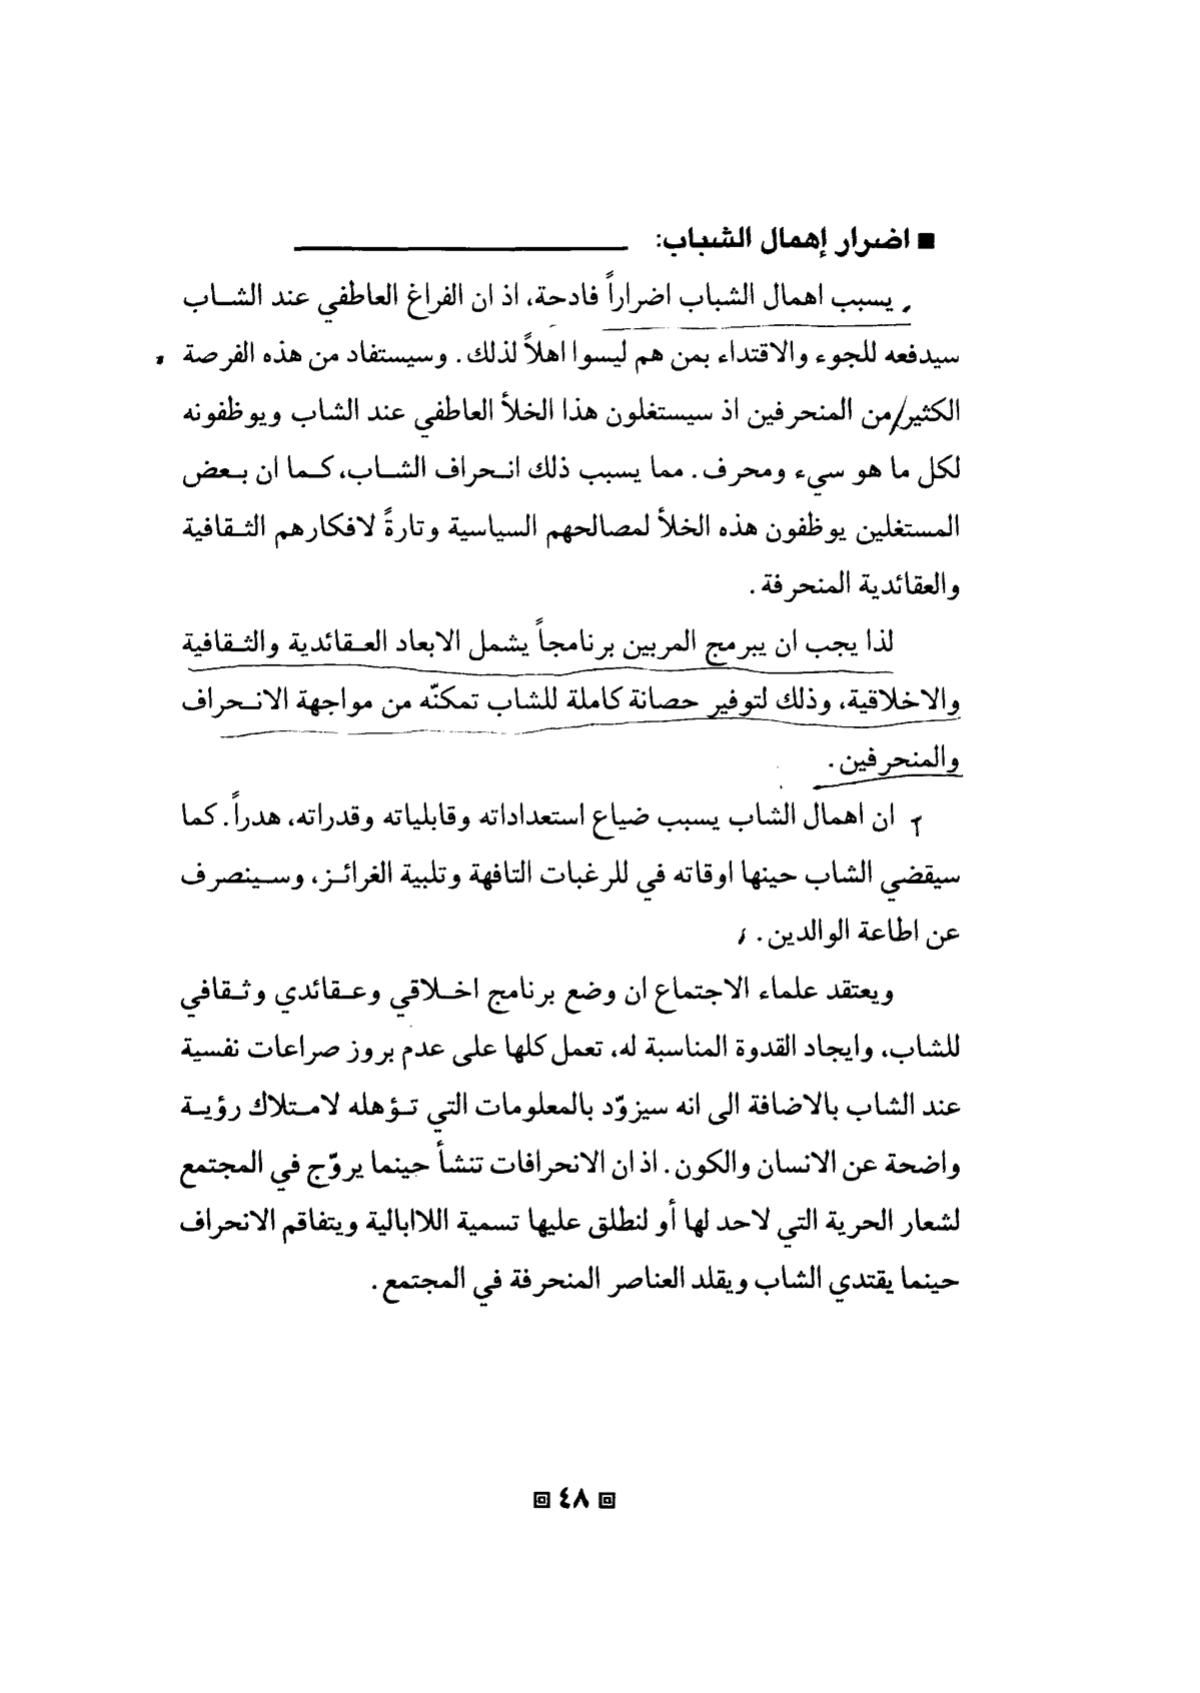 ■ اضرار إهمال الشباب:
يسبب اهمال الشباب اضراراً فادحة، اذ ان الفراغ العاطفي عند الشاب
سيدفعه للجوء والاقتداء بمن هم ليسوا اهلاً لذلك. وسيستفاد من هذه الفرصة
الكثير من المنحرفين اذ سيستغلون هذا الخلأ العاطفي عند الشاب ويوظفونه
لكل ما هو سيء ومحرف. مما يسبب ذلك انحراف الشاب، كما ان بعض
المستغلين يوظفون هذه الخلأ لمصالحهم السياسية وتارةً لافكارهم الثقافية
والعقائدية المنحرفة.
لذا يجب ان يبرمج المربين برنامجاً يشمل الابعاد العقائدية والثقافية
والاخلاقية، وذلك لتوفير حصانة كاملة للشاب تمكنّه من مواجهة الانحراف
والمنحرفين.
ان اهمال الشاب يسبب ضياع استعداداته وقابلياته وقدراته، هدراً. كما
سيقضي الشاب حينها اوقاته في للرغبات التافهة وتلبية الغرائز، وسينصرف
عن اطاعة الوالدين.
ويعتقد علماء الاجتماع ان وضع برنامج اخلاقي وعقائدي وثقافي
للشاب، وايجاد القدوة المناسبة له، تعمل كلها على عدم بروز صراعات نفسية
عند الشاب بالاضافة الى انه سيزوّد بالمعلومات التي تؤهله لامتلاك رؤية
واضحة عن الانسان والكون. اذ ان الانحرافات تنشأ حينما يروّج في المجتمع
لشعار الحرية التي لاحد لها أو لنطلق عليها تسمية اللاابالية ويتفاقم الانحراف
حينما يقتدي الشاب ويقلد العناصر المنحرفة في المجتمع.
٤٨